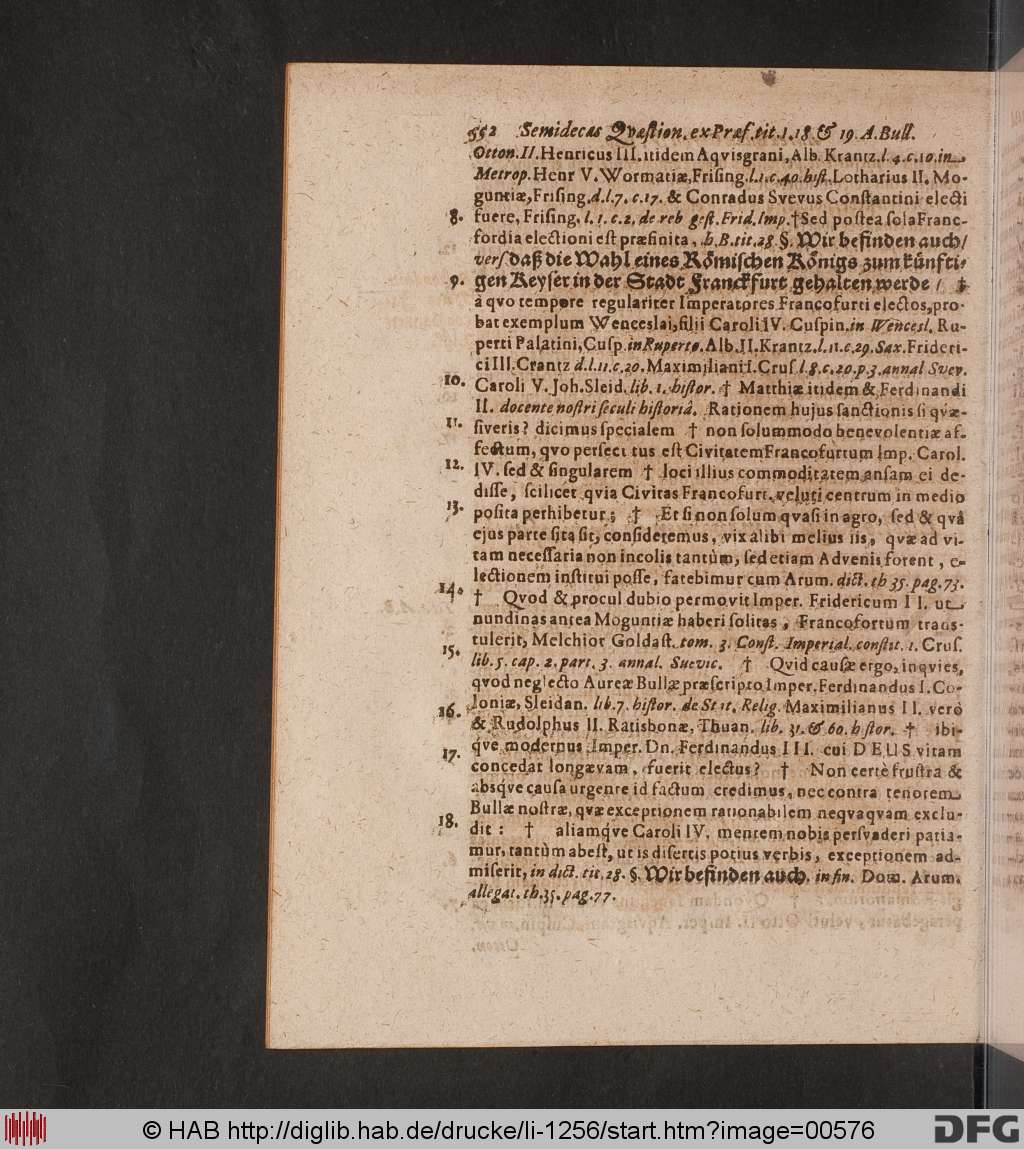 552 Semidecas Qvæſtion. ex Præf. tit. 1. 18. & 19. A. Bull.
Otton. II. Henricus III. itidem Aqvisgrani, Alb. Krantz. l. 4. c. 10. in
Metrop. Henr V. Wormatiæ, Friſing. l. 1. c. 40. hiſt. Lotharius II. Mo-
guntiæ, Friſing. d. l. 7. c. 17. & Conradus Svevus Conſtantini electi
8. fuere, Friſing. l. 1. c. 2. de reb geſt. Frid. Imp. † Sed poſtea ſola Franc-
fordia electioni eſt præfinita, h. B. tit. 28 §. Wir befinden auch/
verſ daß die Wahl eines Römiſchen Königs zum künffti-
9. gen Keyſer in der Stadt Franckfurt gehalten werde / †
à qvo tempore regulariter Imperatores Francofurti electos, pro-
bat exemplum Wenceslai, filii Caroli IV. Cuſpin. in Wencesl. Ru-
perti Palatini, Cuſp. in Ruperto. Alb. II. Krantz. l. 11. c. 29. Sax. Frideri-
ci III. Crantz d. l. 11. c. 20. Maximiliani I. Cruſ. l. 8. c. 20. p. 3. annal Svev.
10. Caroli V. Joh. Sleid. lib. 1. hiſtor. † Matthiæ itidem & Ferdinandi
II. docente noſtri ſeculi hiſtoriâ. Rationem hujus ſanctionis ſi qvæ-
11. ſiveris? dicimus ſpecialem † non ſolummodo benevolentiæ af-
fectum, qvo perſecutus eſt Civitatem Francofurtum Imp. Carol.
12. IV. ſed & ſingularem † loci illius commoditatem anſam ei de-
diſſe, ſcilicet qvia Civitas Francofurt. veluti centrum in medio
13. poſita perhibetur; † Et ſi non ſolum qvaſi in agro, ſed & qvâ
ejus parte ſita ſit, conſideremus, vix alibi melius iis, qvæ ad vi-
tam neceſſaria non incolis tantùm, ſed etiam Advenis forent, e-
lectionem inſtitui poſſe, fatebimur cum Arum. dict. th 35. pag. 73.
14. † Qvod & procul dubio permovit Imper. Fridericum II. ut
nundinas antea Moguntiæ haberi ſolitas, Francofortum trans-
tulerit, Melchior Goldaſt. tom. 3. Conſt. Imperial. conſtit. 1. Cruſ.
15. lib. 5. cap. 2. part. 3. annal. Suevic. † Qvid cauſæ ergo, inqvies,
qvod neglecto Aureæ Bullæ præſcripto Imper. Ferdinandus I. Co-
loniæ, Sleidan. lib. 7. hiſtor. de Stat. Relig. Maximilianus II. verò
16. & Rudolphus II. Ratisbonæ, Thuan. lib. 31. & 60. hiſtor. † ibi-
qve modernus Imper. Dn. Ferdinandus III. cui DEUS vitam
17. concedat longævam, fuerit electus? † Non certè fruſtra &
absqve cauſa urgente id factum credimus, nec contra tenorem
Bullæ noſtræ, qvæ exceptionem rationabilem neqvaqvam exclu-
18. dit: † aliamqve Caroli IV. mentem nobis perſvaderi patia-
mur, tantùm abeſt, ut is diſertis potius verbis, exceptionem ad-
miſerit, in dict. tit. 28. §. Wir befinden auch. in fin. Dom. Arum.
allegat. th. 35. pag. 77.
© HAB http://diglib.hab.de/drucke/li-1256/start.htm?image=00576
DFG